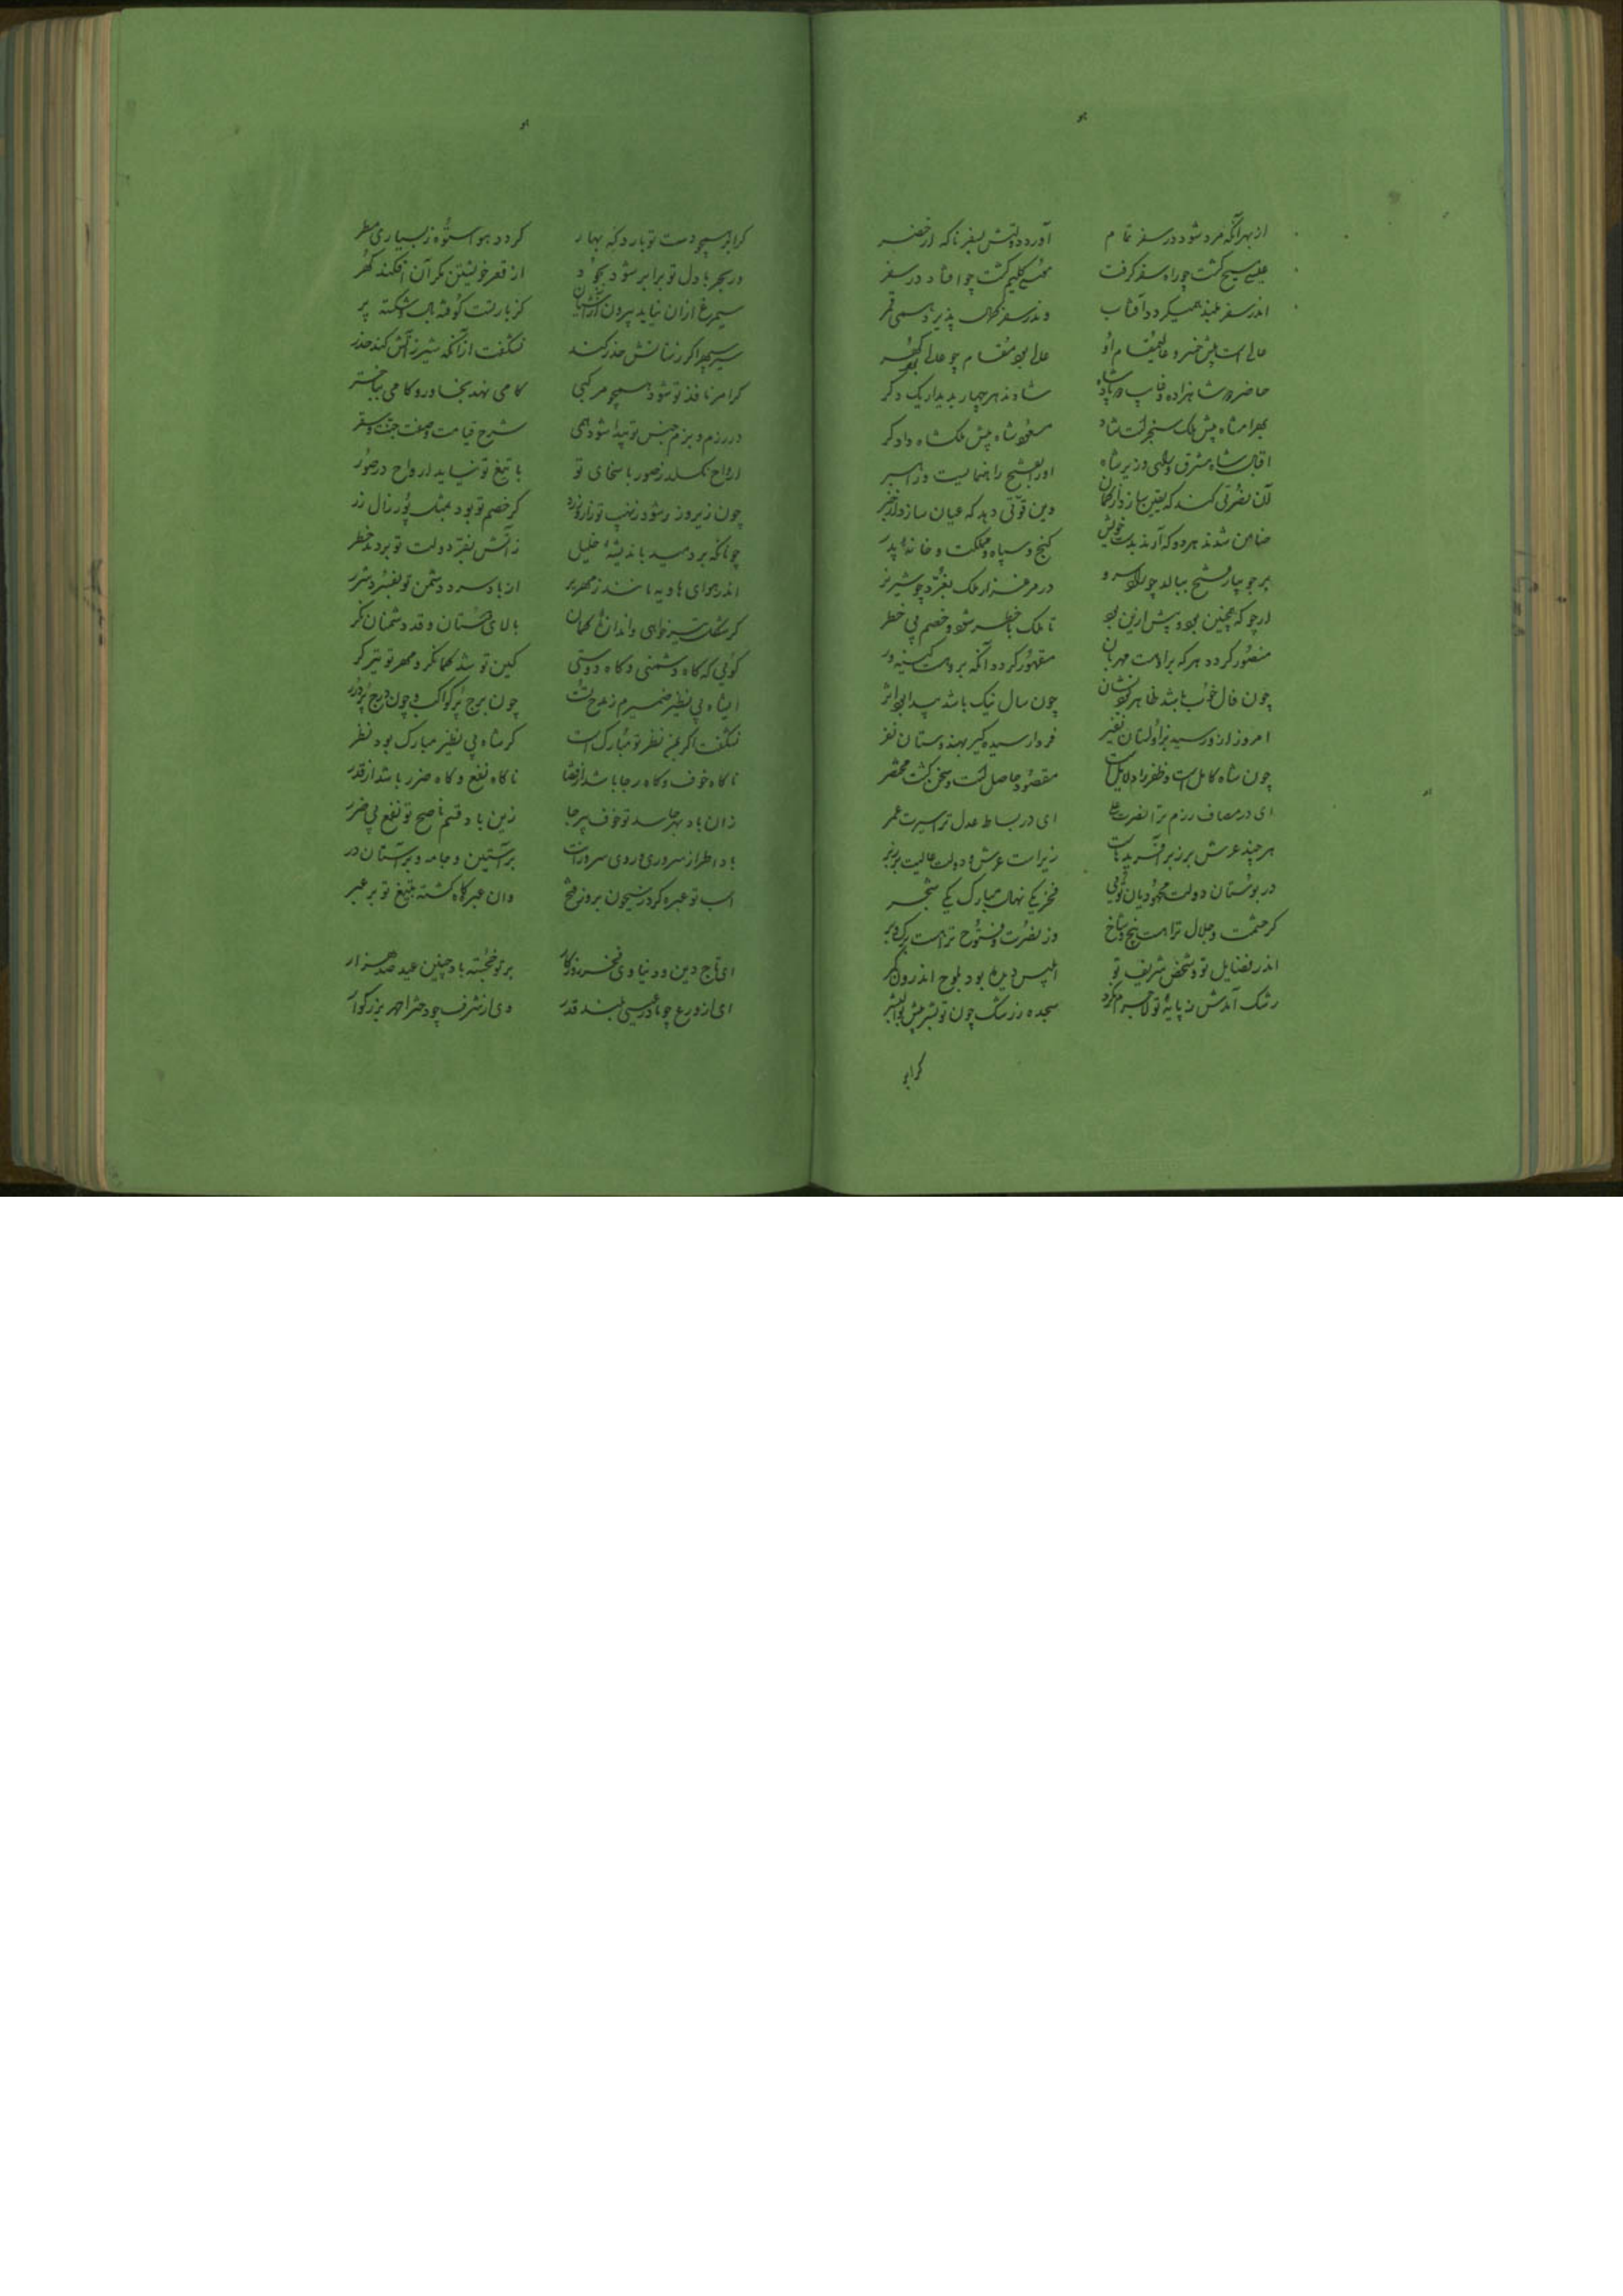 هو
از بهر آنکه مرد شود در سفر تمام آورد دولتش بسفر ناکه از حضر
عیسی مسیح گشت چو راه سفر گرفت موسی کلیم گشت چو افتاد در سفر
اندر سفر بلند همیکردد آفتاب وندر سفر کمال پذیرد همی قمر
عالی است پیش خسرو عالی مقام او عالی بود مقام چو عالی بود گهر
حاضر شاهزاده شادند هر چهار بدیدار یک دگر
بهرامشاه پیش ملک سنجر است شاد مسعود شاه پیش ملکشاه دادگر
اقبال شاه مشرق و وزیر شاه او را بفتح راهنمایست و راهبر
آن نصرتی کند که یقین سازد از گمان وین قوتی دهد که عیان سازد از خبر
ضامن شدند هر دو که آرند بدست خویش گنج و سپاه و مملکت و خانهٔ پدر
بر جویبار فتح ببالد چو زاد سرو در مرغزار ملک بغرد چو شیر نر
ارجو که همچنین بود و پیش ازین بود تا ملک با خطر شود و خصم بی خطر
منصور کردد هر که بر اوست مهربان مقهور کردد آنکه بر اوست کینه‌ور
چون فال خوب باشد ظاهر بود نشان چون سال نیک باشد پیدا بود اثر
امروز از رسید فردا رسیده گیر بهندوستان نفر
چون شاه کامل است و ظفر را دلایل است مقصود حاصل است و سخن گشت مختصر
ای در مصاف رزم ترا نصرت علی ای در بساط عدل ترا سیرت عمر
هر چند عرش برزبر آفریده‌هاست زیر است عرش و دولت عالیت بر زبر
در بوستان دولت محمودیان توئی فخر یکی نهال مبارک یکی شجر
کر حشمت و جلال ترا هست بیخ و شاخ وز نصرت و فتوح ترا هست برگ و بر
اندر فضایل تو و شخص شریف تو ابلیس دیده بود بلوح اندرون
رشک آمدش ز پایهٔ تو لاجرم نکرد سجده ز رشک چون تو بشر پیش بوالبشر
کر ابر
هو
کر ابر همچو دست تو بارد که بهار کردد هوا ستوه ز بسیاری مطر
ور بحر با دل تو برابر شود بجود از قعر خویشتن بکران افکند گهر
سیمرغ از آن نیاید بیرون ز آشیان کز بار تست کوفته بال و شکسته پر
شیر سپهر اگر ز سنانش حذر کند نشگفت از آنکه شیر ز آتش کند حذر
کر امر نافذ تو شود همچو مرکبی کامی نهد بخاور و کامی بباختر
در رزم و بزم جنس تو پیدا شود همی شرح قیامت و صفت جنت و سقر
ارواح نکسلد ز صور با سخای تو با تیغ تو نیاید ارواح در صور
چون زیر زار شود ز نهیب تو زار و زرد کر خصم تو بود بمثل پور زال زر
چونانکه بردمید باندیشهٔ خلیل ز آتش بفر دولت تو بردمد خضر
اندر هوای هاویه مانند زمهریر از باد سرد دشمن تو بفسرد شرر
کر شکل تیر خواهی و اندازهٔ کمان بالای دوستان و قد دشمنان نگر
گوئی که گاه دشمنی و گاه دوستی کین تو شد کمانگر و مهر تو تیرگر
ایشاه بی نظیر ضمیرم ز مدح تست چون برج پر کواکب و چون درج پر درر
نشگفت اگر بمن نظر تو مبارک است کر شاه بی نظیر مبارک بود نظر
تا گاه خوف و گاه رجا باشد از قضا تا گاه نفع و گاه ضرر باشد از قدر
زان باد بهر حاسد تو خوف بی رجا زین باد قسم ناصح تو نفع بی ضرر
بادا طراز سروری و روی سرورانت بر آستین و جامه و بر آستان در
اسب تو عبره کرده ز سیحون بروز فتح وان عبره‌گاه گشته بتیغ تو بر عبر
ای تاج دین و دنیا وی فخر روزگار بر تو خجسته باد چنین عید صد هزار
ای از ورع چو مادر عیسی بلند قدر وی از شرف چو دختر احمد بزرگوار